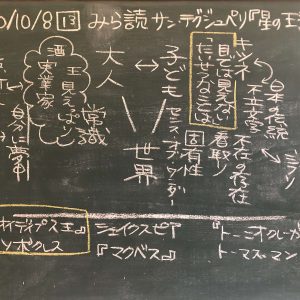 0/10/8 13 みら読 サン・テグジュペリ『星の王
日本の伝統
不立文字
キツネ
目では見えない
たいせつなことは
不在の存在
看取り
固有性
子ども
センス・オブ・ワンダー
大人
世界
常識
王 見えっぱり
酒
実業家
自分に夢中
オイディプス王』
ソポクレス
シェイクスピア
『マクベス』
『トーニオ・クレーガー
トーマス・マン